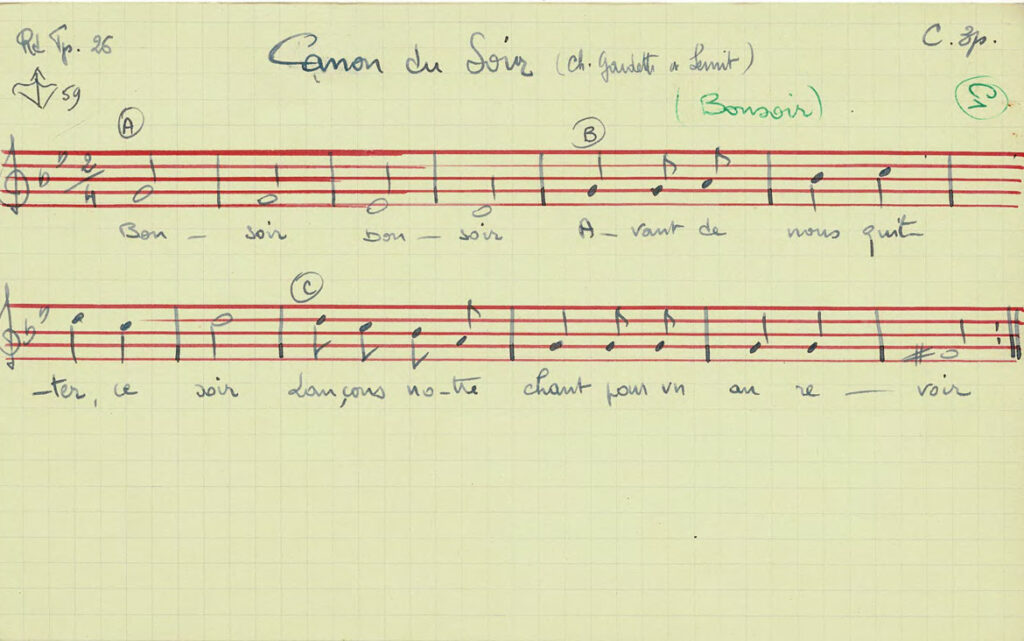 Rd Tp. 26
Canon du Soir (Ch. Gaudetti à Sennit)
C. 3p.
59
(Bonsoir)
C1
A
B
2/4
Bon – soir bon – soir A – vant de nous quit–
C
–ter, ce soir Lançons no–tre chant pour un au re – voir